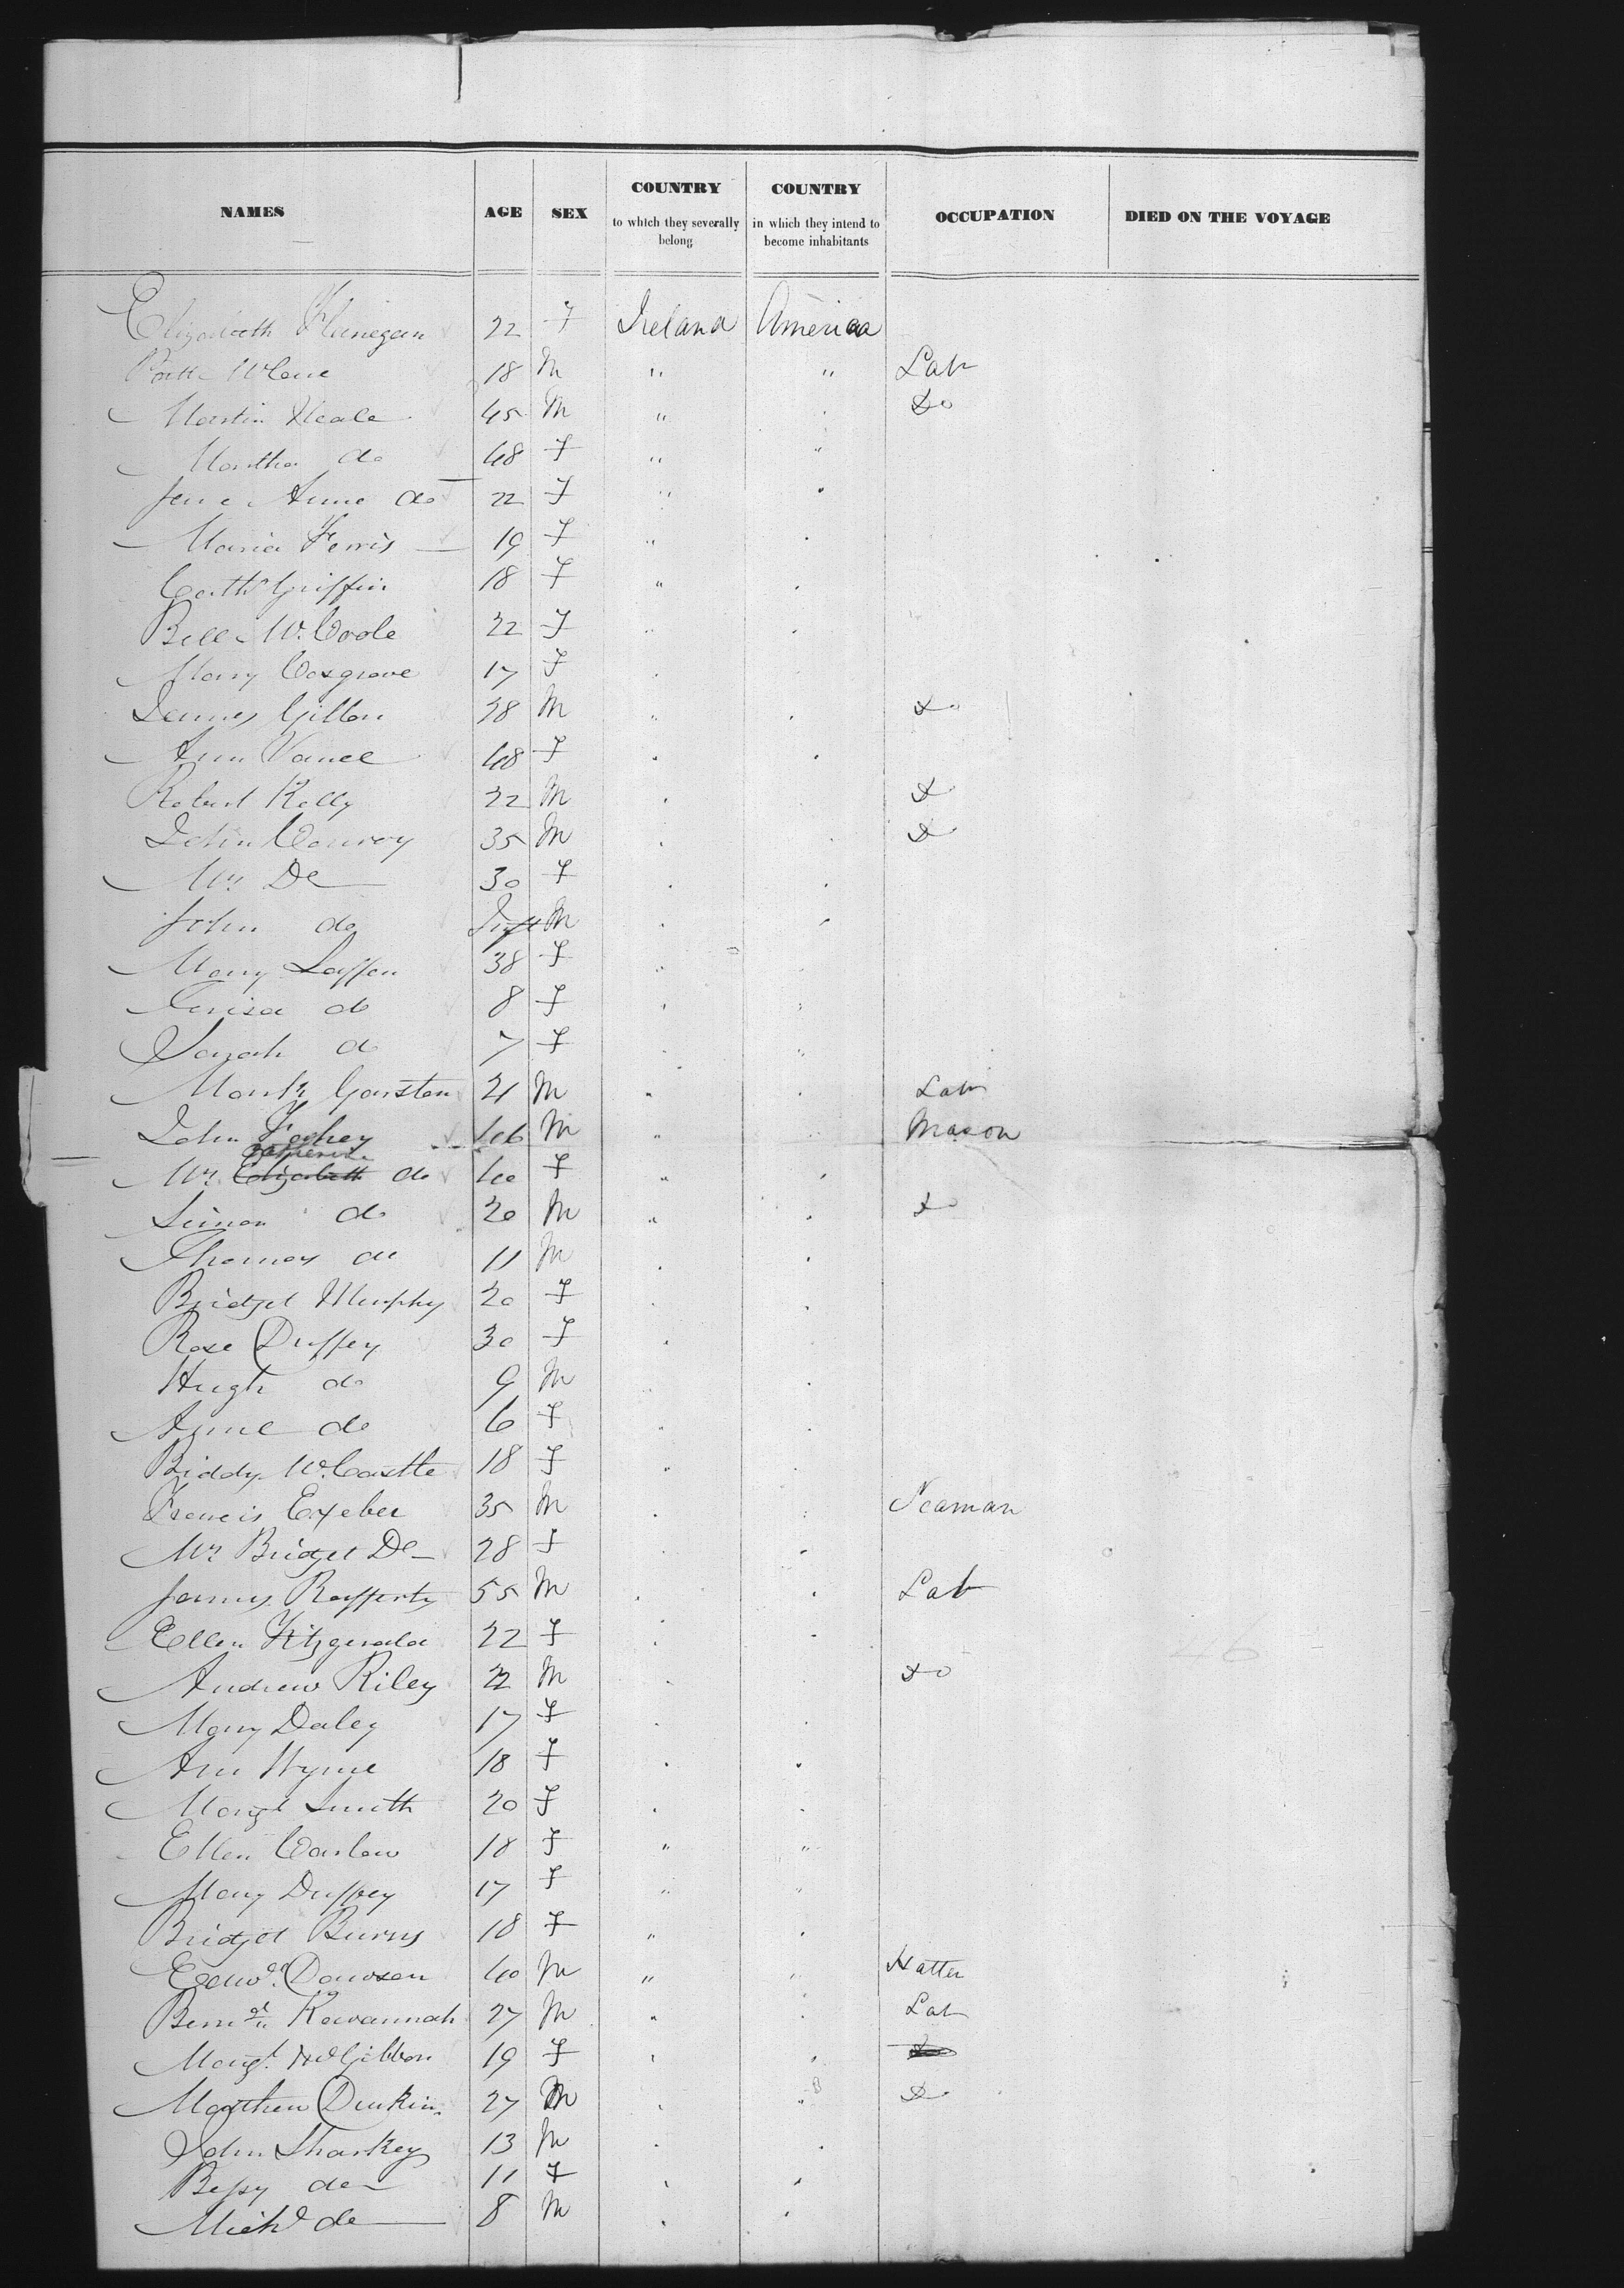 NAMES AGE SEX COUNTRY to which they severally belong COUNTRY in which they intend to become inhabitants OCCUPATION DIED ON THE VOYAGE
Elizabeth Flanegan 22 F Ireland America
18 M " " Lab
Martin 45 M " " Do
Martha do 48 F " "
Jane Anne do 22 F " "
Maria Ferris 19 F " "
Cathe Griffin 18 F " "
Bell McCoole 22 F " "
Mary Cosgrove 17 F "
James Gillon 38 M " " Do
Ann Vance 48 F " "
Robert Kelly 22 M " Do
John Conroy 35 M " " Do
Mrs Do 30 F " "
John do Inft M " "
Mary Laffen 38 F "
do 8 F " "
Sarah do 7 F " "
Mark Garsten 21 M " " Lab
John Fahey 46 M " Mason
Mrs Catherine Elizabeth do 40 F " "
Simon do 20 M " " Do
Thomas do 11 M " "
Bridget Murphy 20 F " "
Rose Duffey 30 F "
Hugh do 9 M " "
Anne do 6 F "
Biddy McCastle 18 F " "
Francis 35 M " " Seaman
Mrs Bridget Do 28 F "
James Rafferty 55 M " " Lab
Ellen Fitzgerald 22 F " "
Andrew Riley 22 M " Do
Mary Daley 17 F "
Ann Wynne 18 F " "
Margt Smith 20 F " "
Ellen Carlow 18 F " "
Mary Duffey 17 F " "
Bridget Burns 18 F " "
Edwd Dawson 40 M " " Hatter
Bernd Kavannah 27 M " " Lab
Margt McGibbon 19 F " "
Matthew Durkin 27 M " " Do
John Sharkey 13 M " "
Bessy do 11 F " "
Michl do 8 M " "
46